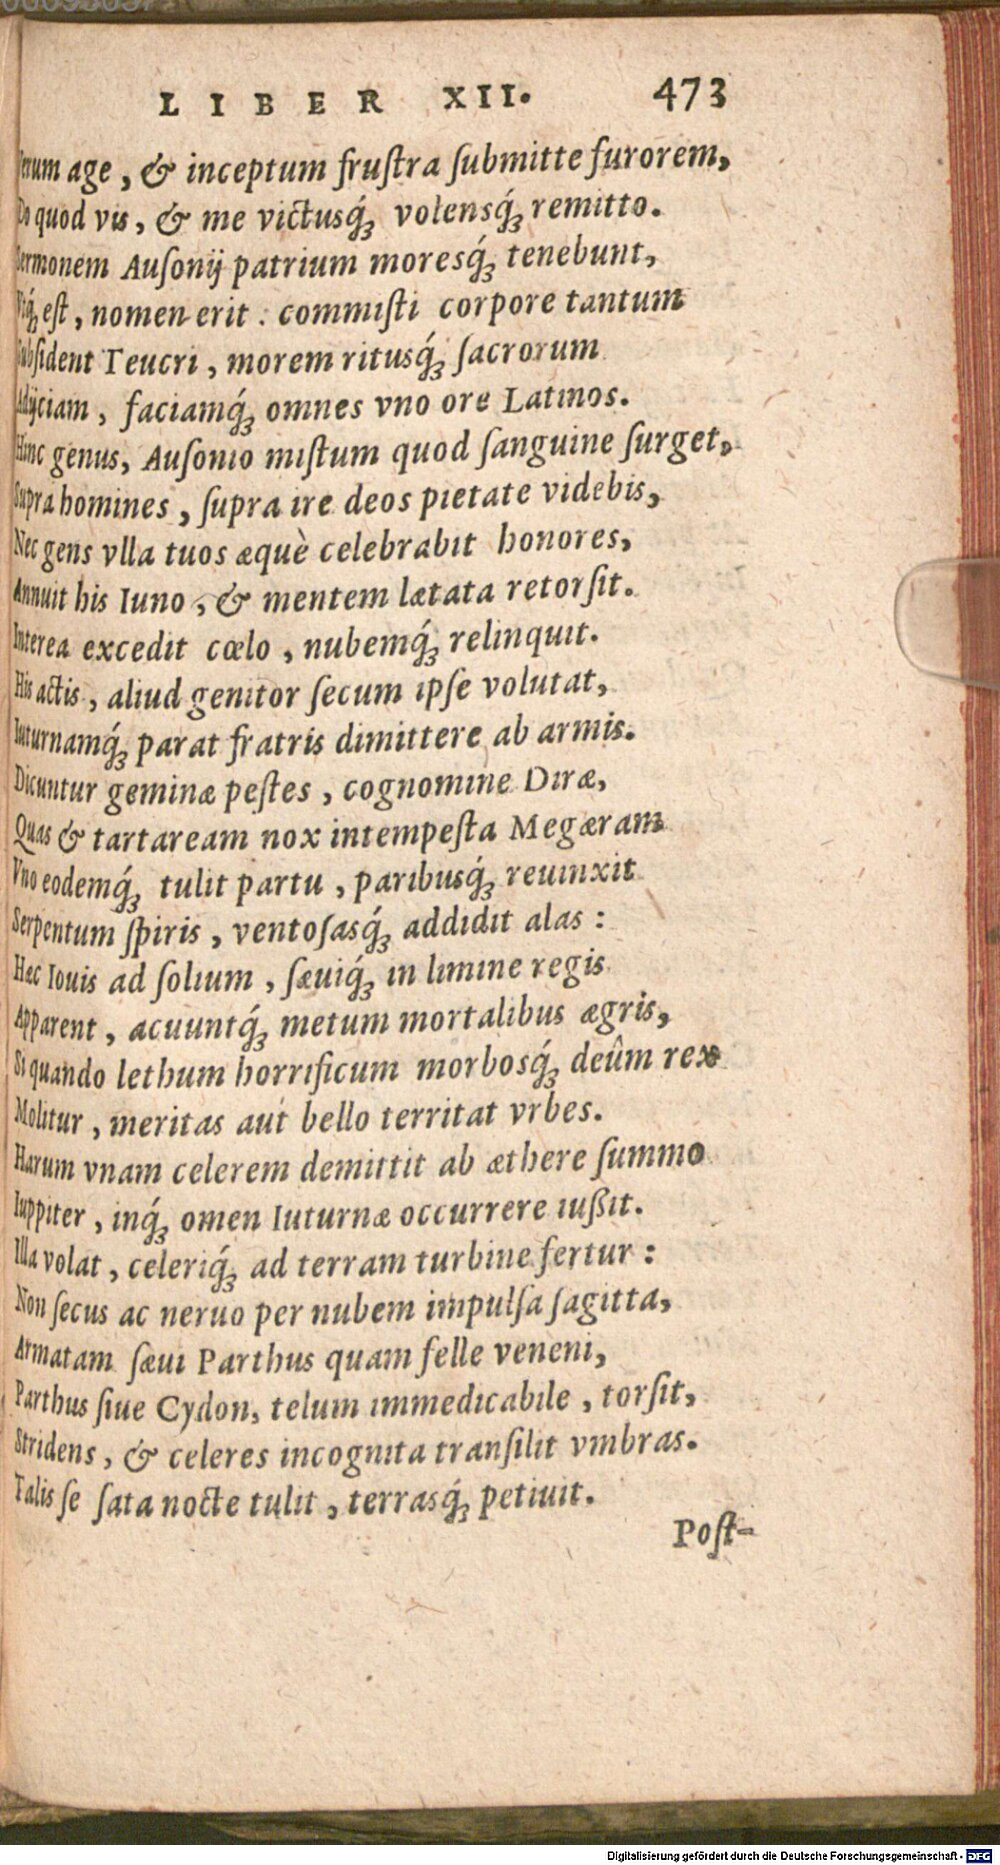 LIBER XII. 473
Verum age, & inceptum fruſtra ſubmitte furorem,
Do quod vis, & me victusq́ꝫ volensq́ꝫ remitto.
Sermonem Auſonij patrium moresq́ꝫ tenebunt,
Vtq́ꝫ eſt, nomen erit: commiſti corpore tantum
Subſident Teucri, morem ritusq́ꝫ ſacrorum
Adijciam, faciamq́ꝫ omnes vno ore Latinos.
Hinc genus, Auſonio miſtum quod ſanguine ſurget,
Supra homines, ſupra ire deos pietate videbis,
Nec gens vlla tuos æquè celebrabit honores,
Annuit his Iuno, & mentem lætata retorſit.
Interea excedit cœlo, nubemq́ꝫ relinquit.
His actis, aliud genitor ſecum ipſe volutat,
Iuturnamq́ꝫ parat fratris dimittere ab armis.
Dicuntur geminæ peſtes, cognomine Diræ,
Quas & tartaream nox intempeſta Megæram
Vno eodemq́ꝫ tulit partu, paribusq́ꝫ reuinxit
Serpentum ſpiris, ventoſasq́ꝫ addidit alas:
Hæc Iouis ad ſolium, ſæuiq́ꝫ in limine regis
Apparent, acuuntq́ꝫ metum mortalibus ægris,
Si quando lethum horrificum morbosq́ꝫ deûm rex
Molitur, meritas aut bello territat vrbes.
Harum vnam celerem demittit ab æthere ſummo
Iuppiter, inq́ꝫ omen Iuturnæ occurrere iußit.
Illa volat, celeriq́ꝫ ad terram turbine fertur:
Non ſecus ac neruo per nubem impulſa ſagitta,
Armatam ſæui Parthus quam felle veneni,
Parthus ſiue Cydon, telum immedicabile, torſit,
Stridens, & celeres incognita tranſilit vmbras.
Talis ſe ſata nocte tulit, terrasq́ꝫ petiuit.
Poſt-
Digitalisierung gefördert durch die Deutsche Forschungsgemeinschaft - DFG